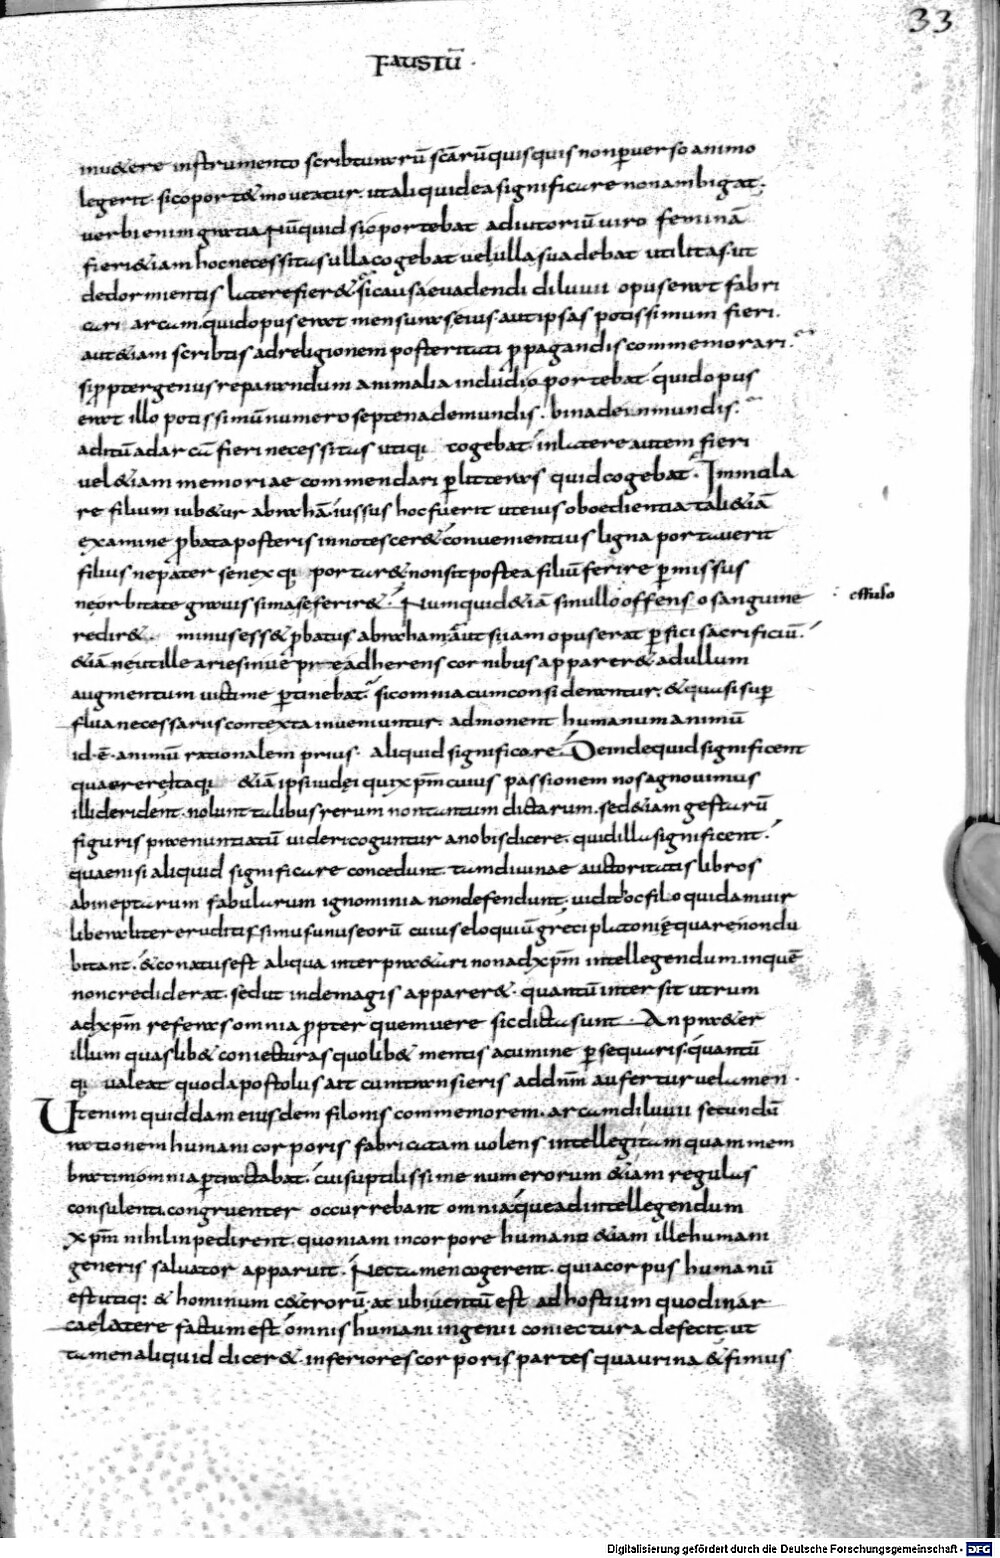 33
FAUSTū ·
inu&ere instrumento scribturarū scārū quisquis non puerso animo
legerit· sic oport& moueatur· ut aliquid ea significare non ambigat·
uerbi enim gratia Nūquid sic oportebat adiutoriū uiro feminā
fieri &iam hoc necessitas ulla cogebat uel ulla suadebat utilitas· ut
de dormientis latere fier& si causa euadendi diluuii opus erat fabri
cari arcam· quid opus erat mensuras eius· aut ipsas potissimum fieri·
aut &iam scribtis ad religionem posteritati ppagandis commemorari·
si ppter genus reparandum animalia includi oportebat· quid opus
erat illo potissimū numero septena de mundis· bina de inmundis·
aditū ad arcā fieri necessitas utiqi cogebat· in latere autem fieri
uel &iam memoriae commendari p litteras quid cogebat· Immola
re filium iub&ur abrahā· iussus hoc fuerit ut eius oboedientia tali &iā
examine pbata posteris innotescer& conuenientius ligna portauerit
filius ne pater senex qi portar& non sit postea filiū ferire pmissus
ne orbitate grauissima se ferir&· Numquid &iā si nullo offenso sanguine
effuso
redir& minus ess& pbatus abraham· aut si iam opus erat pfici sacrificiū·
&iā ne ut ille aries in uepre adherens cornibus apparer& ad ullum
augmentum uictime ptinebat· sic omnia cum considerantur· & quasi sup
flua necessariis contexta inueniuntur· admonent humanum animū
id·ē· animū rationalem prius· aliquid significare· Deinde quid significent
quaerere· Itaqi &iā ipsi iudei qui xpm cuius passionem nos agnouimus
illi derident· nolunt talibus rerum non tantum dictarum· sed &iam gestarū
figuris praenuntiatū uideri coguntur a nobis dicere· quid illa significent·
quae nisi aliquid significare concedunt· tam diuinae auctoritatis libros
ab ineptarum fabularum ignominia non defendunt· uidit hoc filo quidam uir
liberaliter eruditissimus unus eorū cuius eloquiū greci platoni equare non du
bitant· & conatus est aliqua interpra&ari non ad xpm intellegendum· in quē
non crediderat· sed ut inde magis apparer&· quantū intersit utrum
ad xpm referas omnia ppter quem uere sic dicta sunt· An pra&er
illum quaslib& coniecturas quolib& mentis acumine psequaris· quantū
qi ualeat quod apostolus ait cum transieris ad dnm auferetur uelamen·
Ut enim quiddam eiusdem filonis commemorem· arcam diluuii secundū
rationem humani corporis fabricatam uolens intellegi tamquam mem
bratim omnia ptractabat· cui suptilissime numerorum &iam regulas
consulenti· congruenter occurrebant omnia que ad intellegendum
xpm nihil inpedirent· quoniam in corpore humano &iam ille humani
generis saluator apparuit· Nec tamen cogerent· quia corpus humanū
est utiqi: & hominum c&erorū· at ubi uentū est ad hostium quod in ar
cae latere factum est omnis humani ingenii coniectura defecit· ut
tamen aliquid dicer&· inferiores corporis partes qua urina & fimus
Digitalisierung gefördert durch die Deutsche Forschungsgemeinschaft - DFG